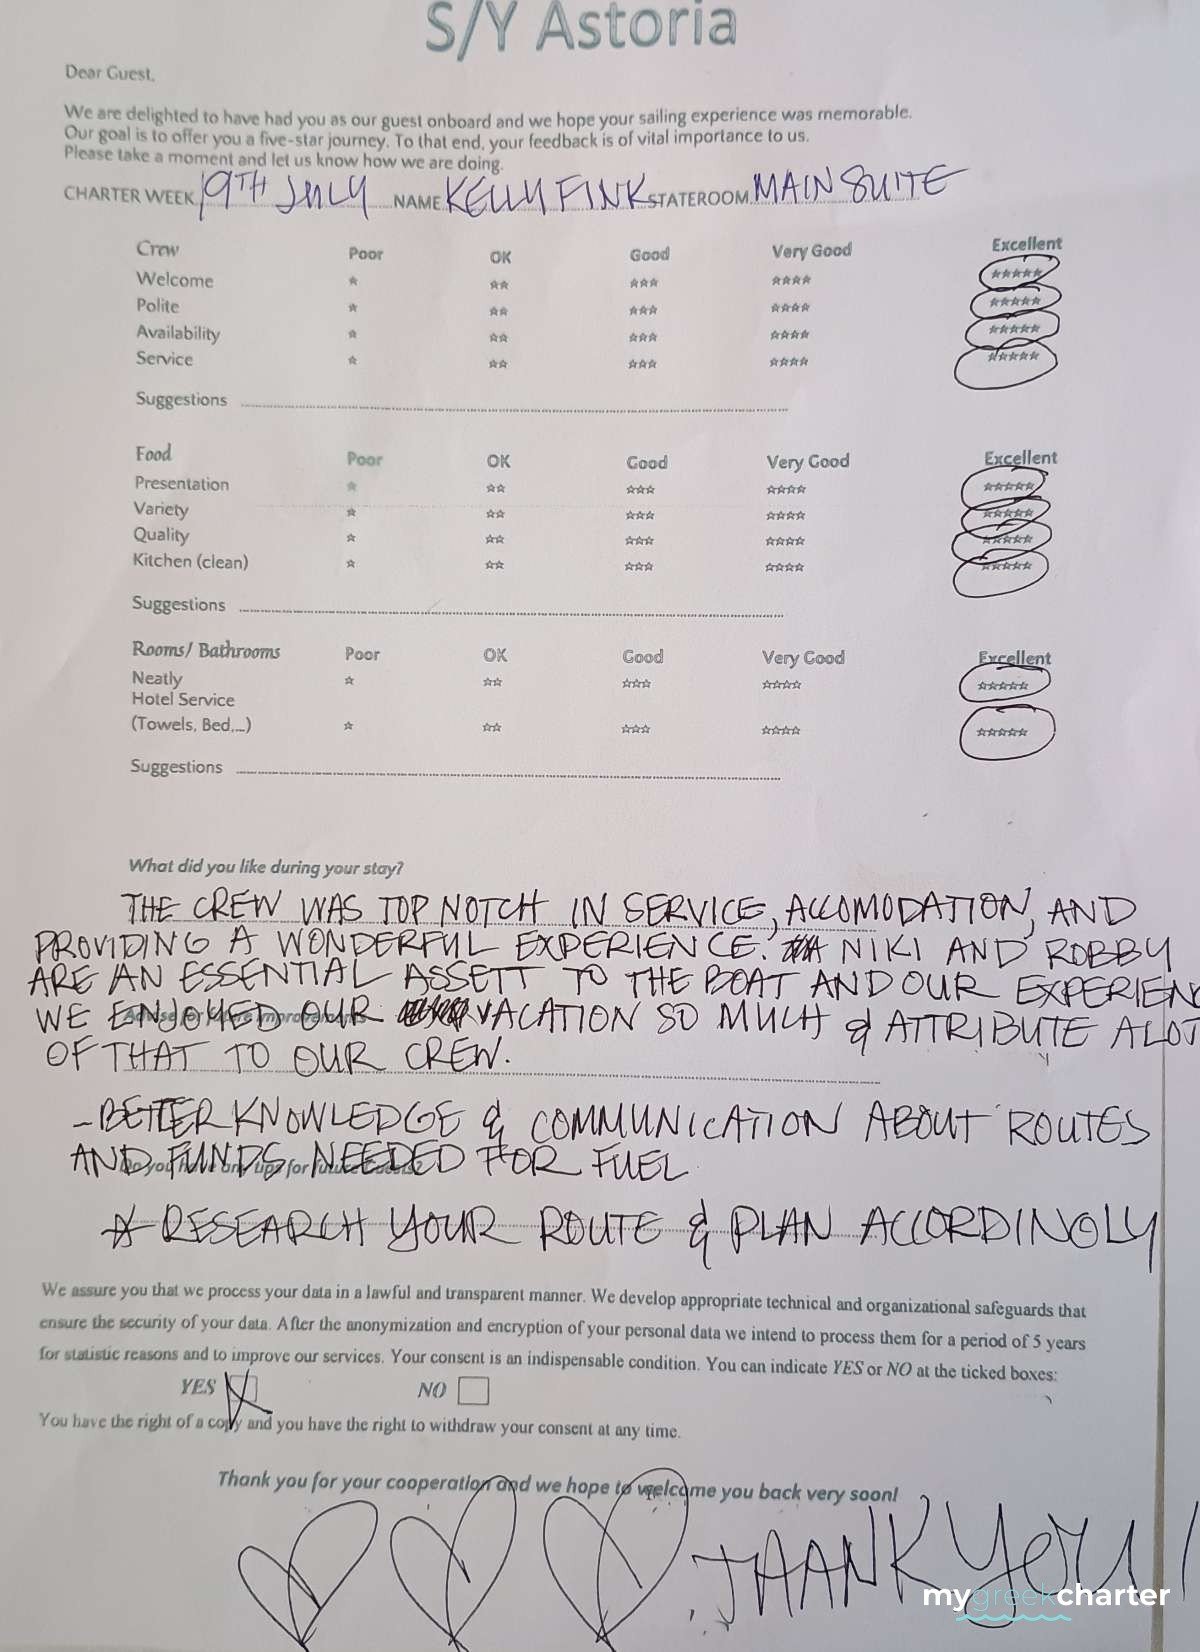 S/Y Astoria
Dear Guest,
We are delighted to have had you as our guest onboard and we hope your sailing experience was memorable.
Our goal is to offer you a five-star journey. To that end, your feedback is of vital importance to us.
Please take a moment and let us know how we are doing.
CHARTER WEEK 19TH JULY NAME KELLY FINK STATEROOM MAIN SUITE
Crew Poor OK Good Very Good Excellent
Welcome ☆ ☆☆ ☆☆☆ ☆☆☆☆ ☆☆☆☆☆
Polite ☆ ☆☆ ☆☆☆ ☆☆☆☆ ☆☆☆☆☆
Availability ☆ ☆☆ ☆☆☆ ☆☆☆☆ ☆☆☆☆☆
Service ☆ ☆☆ ☆☆☆ ☆☆☆☆ ☆☆☆☆☆
Suggestions
Food Poor OK Good Very Good Excellent
Presentation ☆ ☆☆ ☆☆☆ ☆☆☆☆ ☆☆☆☆☆
Variety ☆ ☆☆ ☆☆☆ ☆☆☆☆ ☆☆☆☆☆
Quality ☆ ☆☆ ☆☆☆ ☆☆☆☆ ☆☆☆☆☆
Kitchen (clean) ☆ ☆☆ ☆☆☆ ☆☆☆☆ ☆☆☆☆☆
Suggestions
Rooms/ Bathrooms Poor OK Good Very Good Excellent
Neatly ☆ ☆☆ ☆☆☆ ☆☆☆☆ ☆☆☆☆☆
Hotel Service
(Towels, Bed,...) ☆ ☆☆ ☆☆☆ ☆☆☆☆ ☆☆☆☆☆
Suggestions
What did you like during your stay?
THE CREW WAS TOP NOTCH IN SERVICE, ACCOMODATION, AND
PROVIDING A WONDERFUL EXPERIENCE. NIKI AND ROBBY
ARE AN ESSENTIAL ASSETT TO THE BOAT AND OUR EXPERIENC
WE ENJOYED OUR VACATION SO MUCH & ATTRIBUTE ALOT
OF THAT TO OUR CREW.
- BETTER KNOWLEDGE & COMMUNICATION ABOUT ROUTES
AND FUNDS NEEDED FOR FUEL
☆ RESEARCH YOUR ROUTE & PLAN ACCORDINGLY
We assure you that we process your data in a lawful and transparent manner. We develop appropriate technical and organizational safeguards that
ensure the security of your data. After the anonymization and encryption of your personal data we intend to process them for a period of 5 years
for statistic reasons and to improve our services. Your consent is an indispensable condition. You can indicate YES or NO at the ticked boxes:
YES NO
You have the right of a copy and you have the right to withdraw your consent at any time.
Thank you for your cooperation and we hope to welcome you back very soon!
THANK YOU!
mygreekcharter